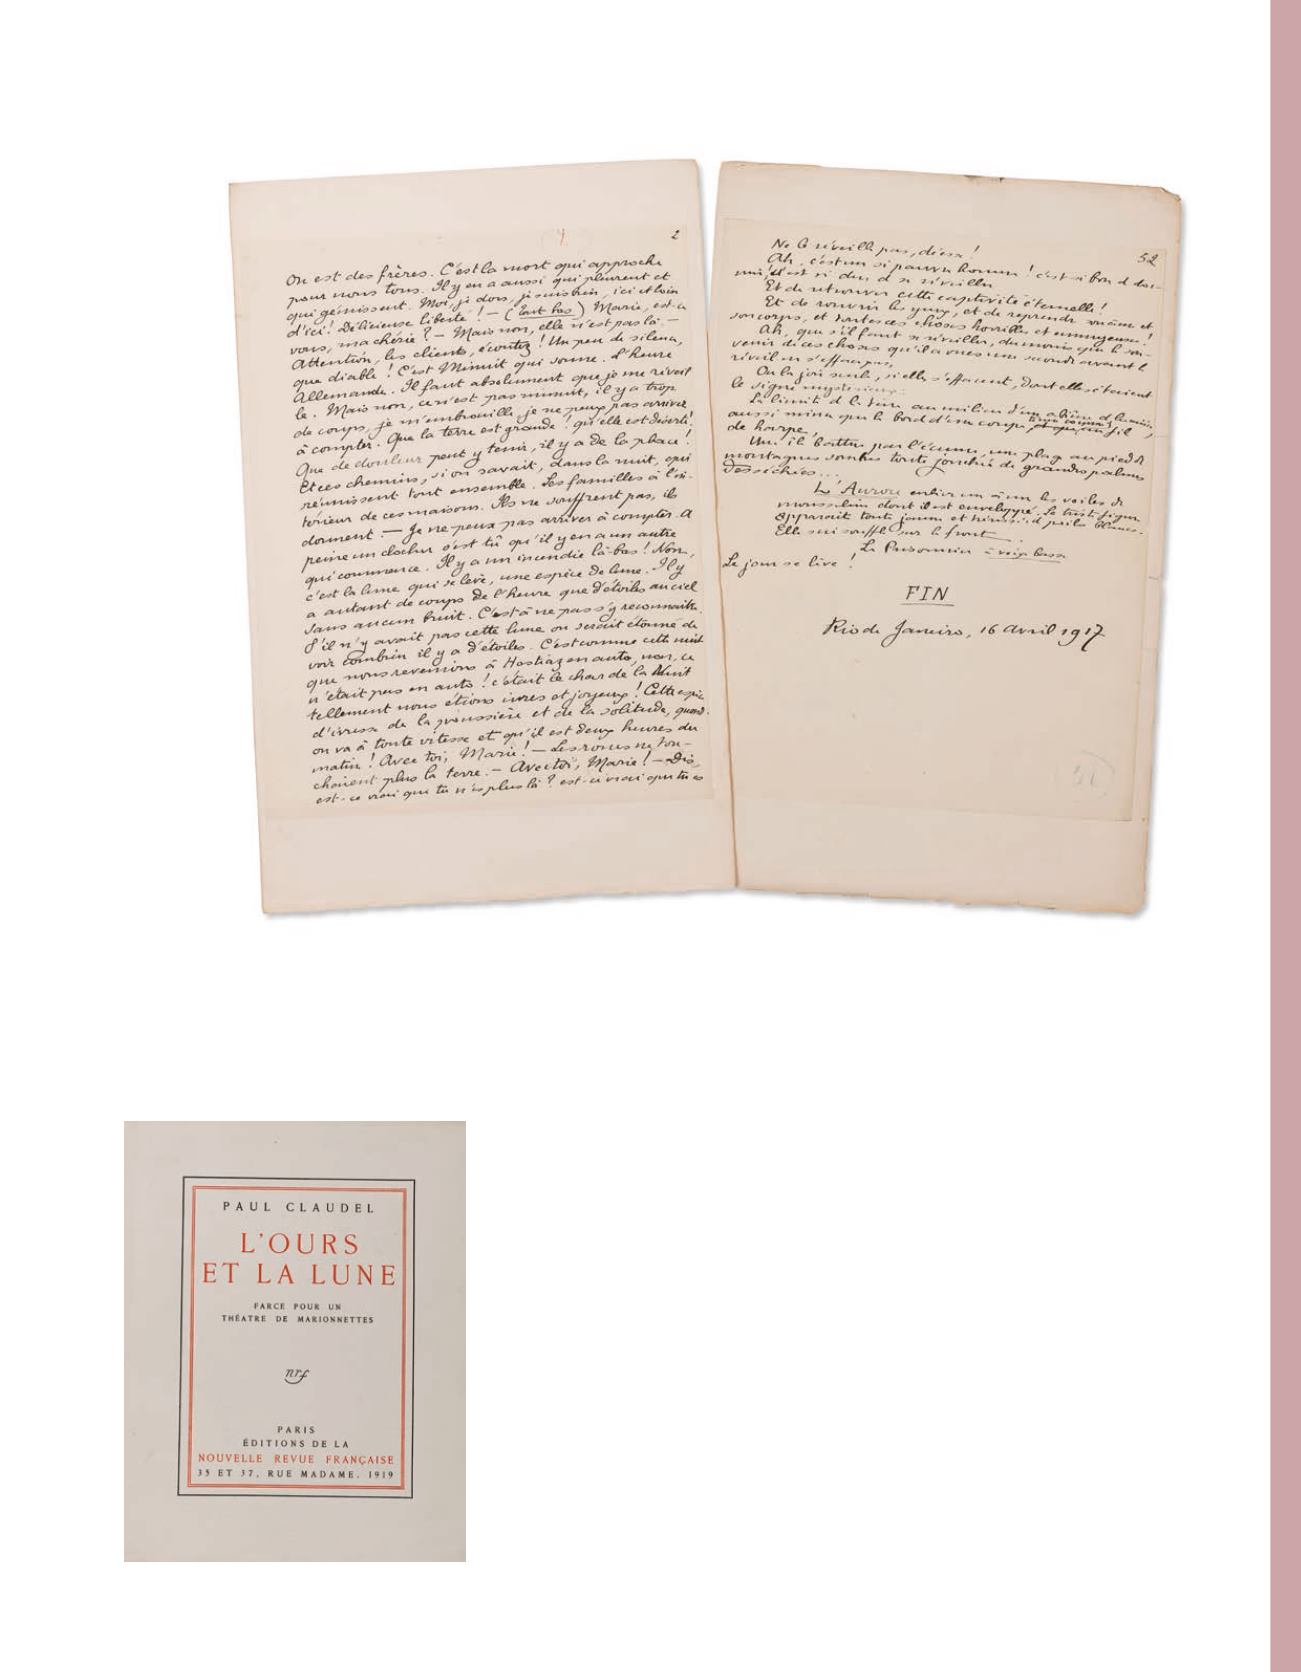 2
On est des frères. C'est la mort qui approche
pour nous tous. Il y en a aussi qui pleurent et
qui gémissent. Moi, je dors, je suis bien, ici et loin
d'ici! Délicieuse liberté! — (Tout bas) Marie, est-ce
vous, ma chérie? — Mais non, elle n'est pas là. —
Attention, les clients, écoutez! Un peu de silence,
que diable! C'est Minuit qui sonne. L'heure
Allemande. Il faut absolument que je me réveil
le. Mais non, ce n'est pas minuit, il y a trop
de coups, je m'embrouille, je ne peux pas arriver
à compter. Que la terre est grande! qu'elle est déserte!
Que de douleur peut y tenir, il y a de la place!
Et ces chemins, si on savait, dans la nuit, qui
réunissent tout ensemble. Les familles à l'in-
térieur de ces maisons. Ils ne souffrent pas, ils
dorment. — Je ne peux pas arriver à compter. A
peine un clocher s'est tû qu'il y en a un autre
qui commence. Il y a un incendie là-bas! Non,
c'est la lune qui se lève, une espèce de lune. Il y
a autant de coups de l'heure que d'étoiles au ciel
sans aucun bruit. C'est à ne pas s'y reconnaître.
S'il n'y avait pas cette lune on serait étonné de
voir combien il y a d'étoiles. C'est comme cette nuit
que nous revenions à Hostiaz en auto, non, ce
n'était pas en auto! c'était le char de la Nuit
tellement nous étions ivres et joyeux! Cette espèce
d'ivresse de la poussière et de la solitude, quand
on va à toute vitesse et qu'il est deux heures du
matin! Avec toi, Marie! — Les roues ne tou-
chaient plus la terre. — Avec toi, Marie! — Dis,
est-ce vrai que tu n'es plus là? est-ce vrai que tu es
52
Ne le réveille pas, déesse!
Ah, c'est un si pauvre homme! c'est si bon de dor-
mir, il est si dur de se réveiller
Et de retrouver cette captivité éternelle!
Et de rouvrir les yeux, et de reprendre son corps et
son corps, et toutes ces choses horribles et ennuyeuses!
Ah, que s'il faut se réveiller, du moins que le sou-
venir de ces choses qu'il a vues une seconde avant le
réveil ne s'efface pas,
Ou la joie seule, si elles s'effacent, dont elles étaient
le signe mystérieux:
La limite de la terre au milieu d'un abîme de lumière,
aussi mince que le bord d'une coupe, fil
de harpe,
Une île battue par l'écume, une plage au pied de
montagnes sombres toute jonchée de grandes palmes
desséchées...
L'Aurore enlève un à un les voiles de
mousseline dont il est enveloppé. La triste figure
apparaît toute jaune et hérissée de poils blancs.
Elle lui souffle sur le front.
Le Prisonnier à voix basse
Le jour se lève!
FIN
Rio de Janeiro, 16 avril 1917
PAUL CLAUDEL
L'OURS
ET LA LUNE
FARCE POUR UN
THÉATRE DE MARIONNETTES
nrf
PARIS
ÉDITIONS DE LA
NOUVELLE REVUE FRANÇAISE
35 ET 37, RUE MADAME. 1919